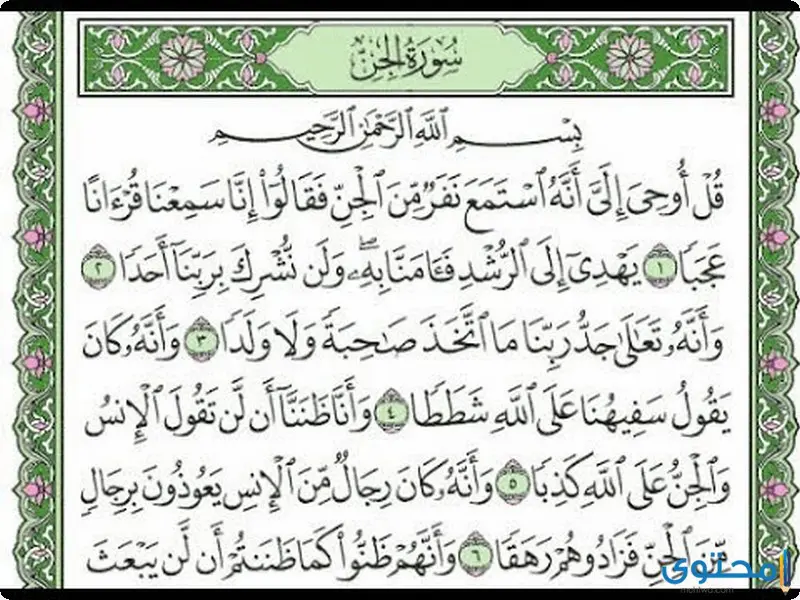 سُورَةُ الجِنِّ
بِسْمِ ٱللَّهِ ٱلرَّحْمَٰنِ ٱلرَّحِيمِ
قُلْ أُوحِىَ إِلَىَّ أَنَّهُ ٱسْتَمَعَ نَفَرٌ مِّنَ ٱلْجِنِّ فَقَالُوٓا۟ إِنَّا سَمِعْنَا قُرْءَانًا
عَجَبًا ١ يَهْدِىٓ إِلَى ٱلرُّشْدِ فَـَٔامَنَّا بِهِۦ ۖ وَلَن نُّشْرِكَ بِرَبِّنَآ أَحَدًا ٢
وَأَنَّهُۥ تَعَٰلَىٰ جَدُّ رَبِّنَا مَا ٱتَّخَذَ صَٰحِبَةً وَلَا وَلَدًا ٣ وَأَنَّهُۥ كَانَ
يَقُولُ سَفِيهُنَا عَلَى ٱللَّهِ شَطَطًا ٤ وَأَنَّا ظَنَنَّآ أَن لَّن تَقُولَ ٱلْإِنسُ
وَٱلْجِنُّ عَلَى ٱللَّهِ كَذِبًا ٥ وَأَنَّهُۥ كَانَ رِجَالٌ مِّنَ ٱلْإِنسِ يَعُوذُونَ بِرِجَالٍ
مِّنَ ٱلْجِنِّ فَزَادُوهُمْ رَهَقًا ٦ وَأَنَّهُمْ ظَنُّوا۟ كَمَا ظَنَنتُمْ أَن لَّن يَبْعَثَ
محتوى
mohtwa.com